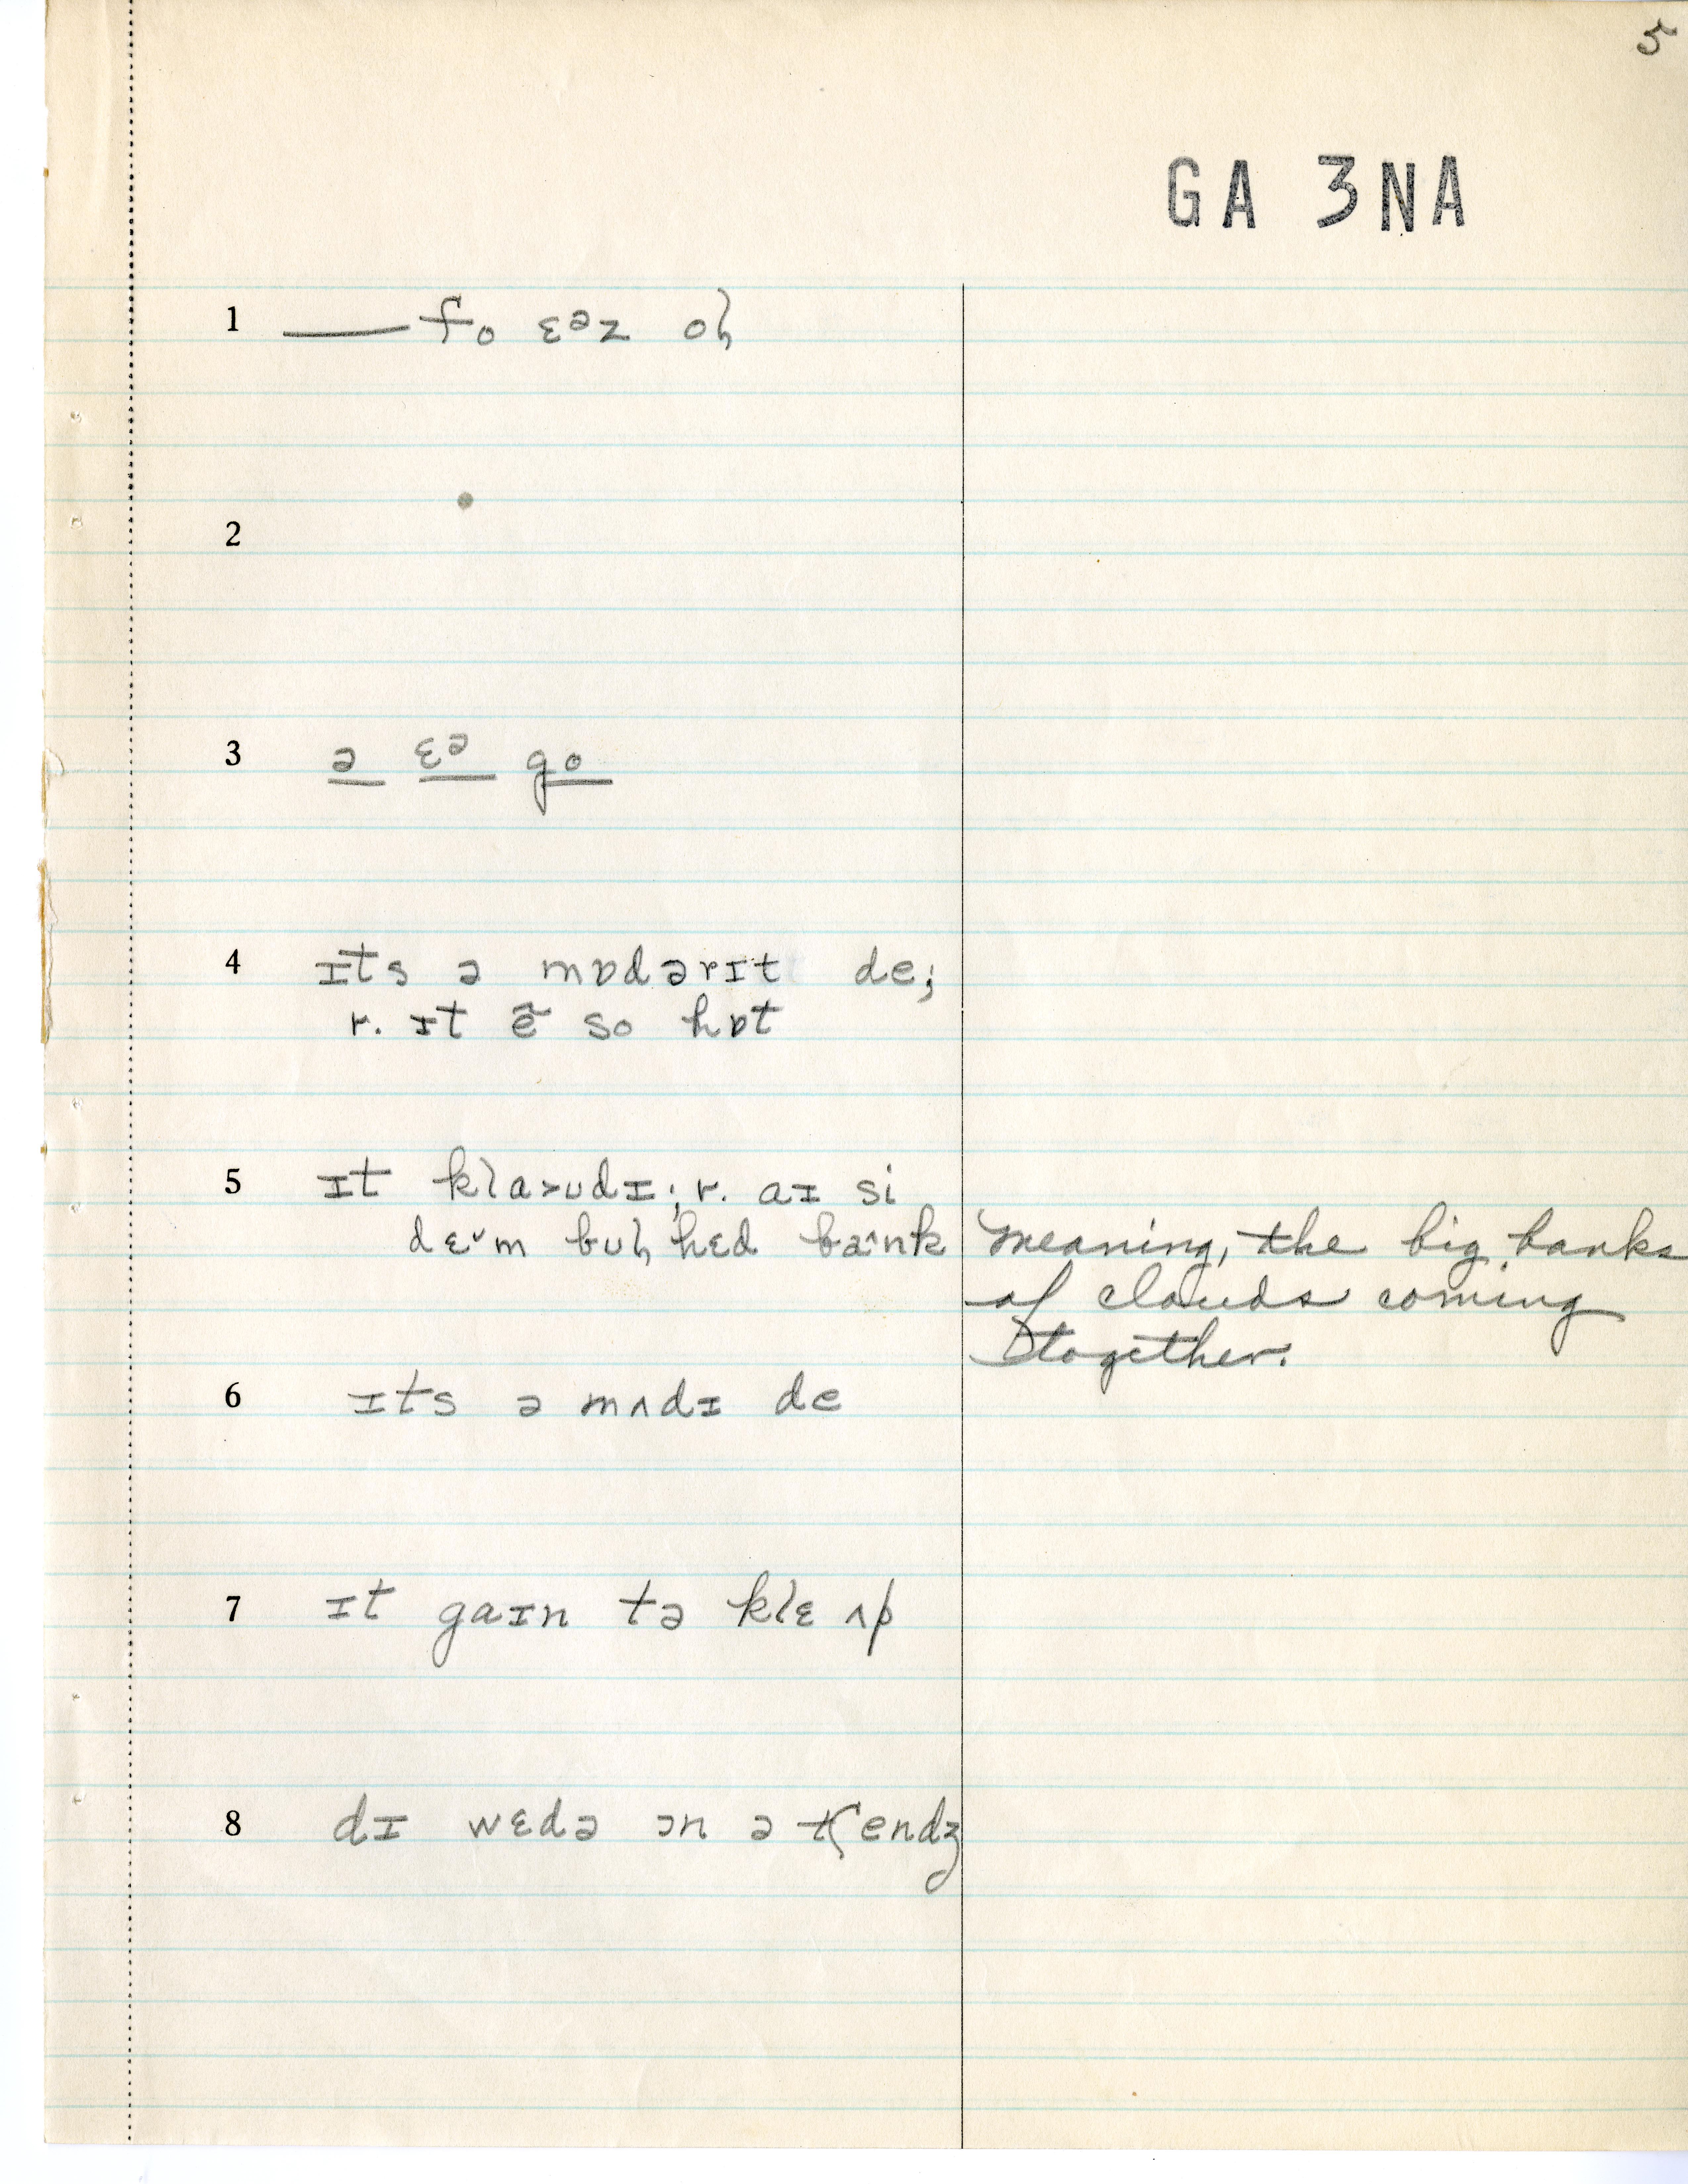 5
GA 3NA
1 —— fo ɛəz oɦ
2
3 ə ɛə go
4 ɪts ə mɒdərɪt de;
r. ɪt ẽ so hɒt
5 ɪt klɑ>ʊdɪ; r. aɪ si
dɛ˅m bʊɦ hɛd ba^nk meaning, the big banks
of clouds coming
together.
6 ɪts ə mʌdɪ de
7 ɪt gaɪn tə klɛ ʌp
8 dɪ wɛdə ɔn ə tʃendʒ